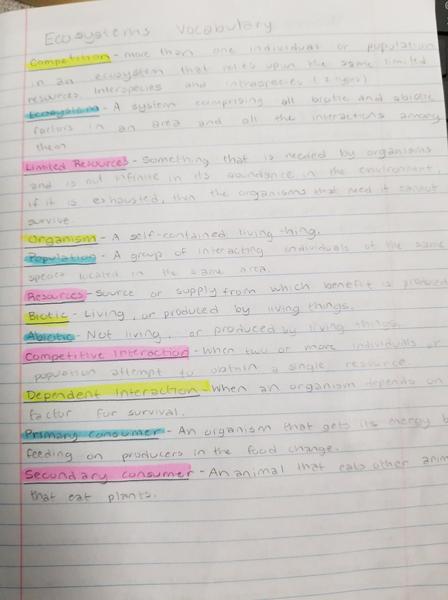 Ecosystems Vocabulary
Competition - more than one individual or population
in an ecosystem that relies upon the same limited
resources. Interspecies and intraspecies (2 types)
Ecosystem - A system comprising all biotic and abiotic
factors in an area and all the interactions among
them
Limited Resources - Something that is needed by organisms
and is not infinite in its abundance in the environment,
if it is exhausted, then the organisms that need it cannot
survive.
Organism - A self-contained living thing.
Population - A group of interacting individuals of the same
species located in the same area.
Resources - Source or supply from which benefit is produced
Biotic - Living, or produced by living things.
Abiotic - Not living, or produced by living things.
Competitive Interaction - When two or more individuals or
population attempt to obtain a single resource
Dependent Interaction - When an organism depends on
factor for survival.
Primary Consumer - An organism that gets its energy b
feeding on producers in the food change.
Secondary consumer - An animal that eats other anim
that eat plants.